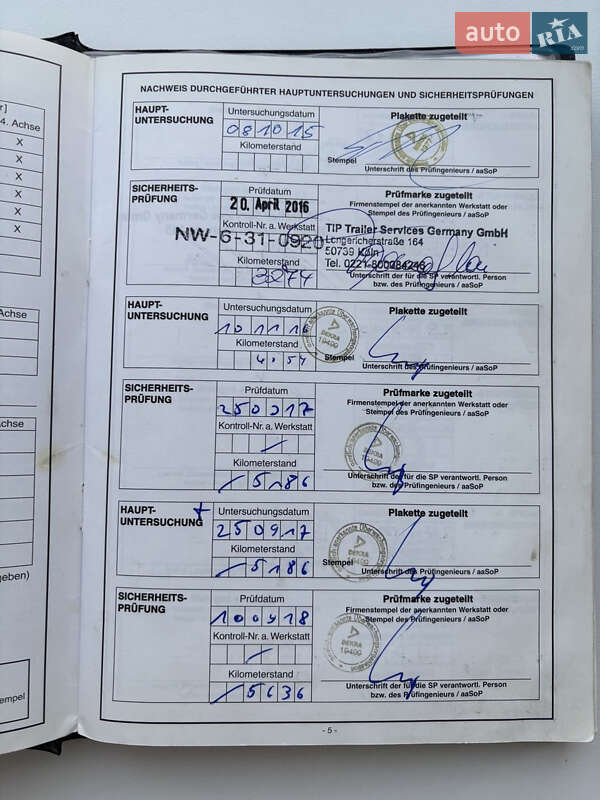 auto RIA .com
r]
4. Achse
X
X
X
X
X
X
Achse
Achse
geben)
tempel
NACHWEIS DURCHGEFÜHRTER HAUPTUNTERSUCHUNGEN UND SICHERHEITSPRÜFUNGEN
HAUPT-
UNTERSUCHUNG
Untersuchungsdatum
081015
Kilometerstand
Plakette zugeteilt
Stempel
Unterschrift des Prüfingenieurs / aaSoP
SICHERHEITS-
PRÜFUNG
Prüfdatum
20. April 2016
Kontroll-Nr. a. Werkstatt
NW-6-31-0920
Kilometerstand
3274
Prüfmarke zugeteilt
Firmenstempel der anerkannten Werkstatt oder
Stempel des Prüfingenieurs / aaSoP
TIP Trailer Services Germany GmbH
Longericherstraße 164
50739 Köln
Unterschrift der für die SP verantwortl. Person
bzw. des Prüfingenieurs / aaSoP
HAUPT-
UNTERSUCHUNG
Untersuchungsdatum
101116
Kilometerstand
Plakette zugeteilt
DEKRA
10400
Stempel
Unterschrift des Prüfingenieurs / aaSoP
SICHERHEITS-
PRÜFUNG
Prüfdatum
Kontroll-Nr. a. Werkstatt
Kilometerstand
5186
Prüfmarke zugeteilt
Firmenstempel der anerkannten Werkstatt oder
Stempel des Prüfingenieurs / aaSoP
Unterschrift der für die SP verantwortl. Person
bzw. des Prüfingenieurs / aaSoP
HAUPT-
UNTERSUCHUNG
Untersuchungsdatum
250917
Kilometerstand
5186
Plakette zugeteilt
DEKRA
10400
Stempel
Unterschrift des Prüfingenieurs / aaSoP
SICHERHEITS-
PRÜFUNG
Prüfdatum
Kontroll-Nr. a. Werkstatt
Kilometerstand
5636
Prüfmarke zugeteilt
Firmenstempel der anerkannten Werkstatt oder
Stempel des Prüfingenieurs / aaSoP
DEKRA
10400
Unterschrift der für die SP verantwortl. Person
bzw. des Prüfingenieurs / aaSoP
- 5 -